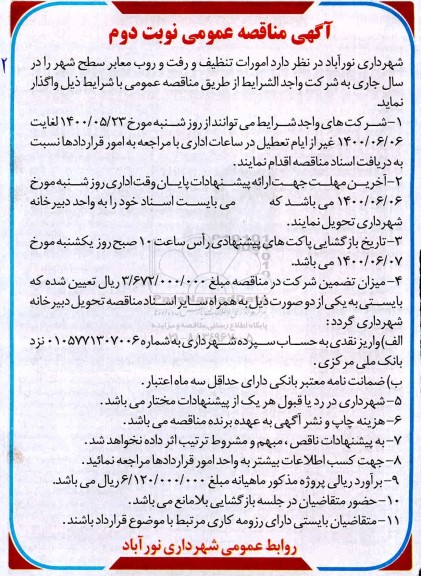 آگهی مناقصه عمومی نوبت دوم
شهرداری نورآباد در نظر دارد امورات تنظیف و رفت و روب معابر سطح شهر را در
سال جاری به شرکت واجد الشرایط از طریق مناقصه عمومی با شرایط ذیل واگذار
نماید.
۱- شرکت های واجد شرایط می توانند از روز شنبه مورخ ۱۴۰۰/۰۵/۲۳ لغایت
۱۴۰۰/۰۶/۰۶ غیر از ایام تعطیل در ساعات اداری با مراجعه به امور قراردادها نسبت
به دریافت اسناد مناقصه اقدام نمایند.
۲- آخرین مهلت جهت ارائه پیشنهادات پایان وقت اداری روز شنبه مورخ
۱۴۰۰/۰۶/۰۶ می باشد که می بایست اسناد خود را به واحد دبیرخانه
شهرداری تحویل نمایند.
۳- تاریخ بازگشایی پاکت های پیشنهادی رأس ساعت ۱۰ صبح روز یکشنبه مورخ
۱۴۰۰/۰۶/۰۷ می باشد.
۴- میزان تضمین شرکت در مناقصه مبلغ ۳/۶۷۲/۰۰۰/۰۰۰ ریال تعیین شده که
بایستی به یکی از دو صورت ذیل به همراه سایر اسناد مناقصه تحویل دبیرخانه
شهرداری گردد:
الف) واریز نقدی به حساب سپرده شهرداری به شماره ۰۱۰۵۷۷۱۳۰۷۰۰۶ نزد
بانک ملی مرکزی.
ب) ضمانت نامه معتبر بانکی دارای حداقل سه ماه اعتبار.
۵- شهرداری در رد یا قبول هر یک از پیشنهادات مختار می باشد.
۶- هزینه چاپ و نشر آگهی به عهده برنده مناقصه می باشد.
۷- به پیشنهادات ناقص ، مبهم و مشروط ترتیب اثر داده نخواهد شد.
۸- جهت کسب اطلاعات بیشتر به واحد امور قراردادها مراجعه نمائید.
۹- برآورد ریالی پروژه مذکور ماهیانه مبلغ ۶/۱۲۰/۰۰۰/۰۰۰ ریال می باشد.
۱۰- حضور متقاضیان در جلسه بازگشایی بلامانع می باشد.
۱۱- متقاضیان بایستی دارای رزومه کاری مرتبط با موضوع قرارداد باشند.
روابط عمومی شهرداری نورآباد
۲